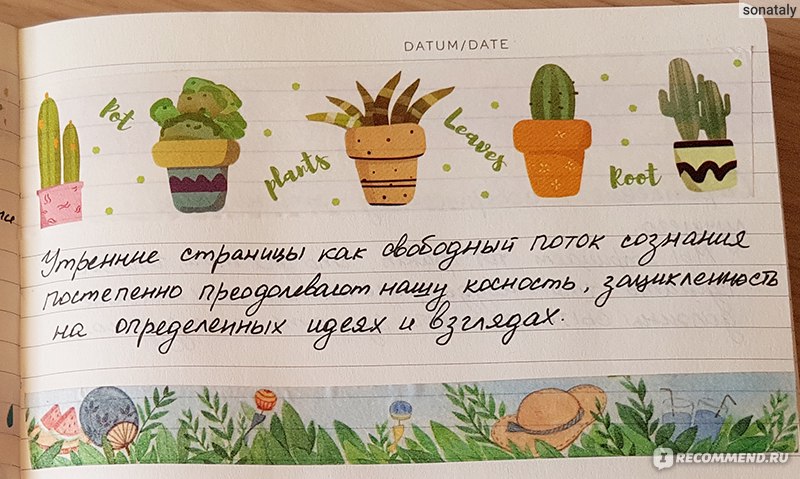 sonataly
DATUM/DATE
Pot
plants
Leaves
Root
Утренние страницы как свободный поток сознания
постепенно преодолевают нашу косность, зацикленность
на определенных идеях и взглядах.
IRECOMMEND.RU